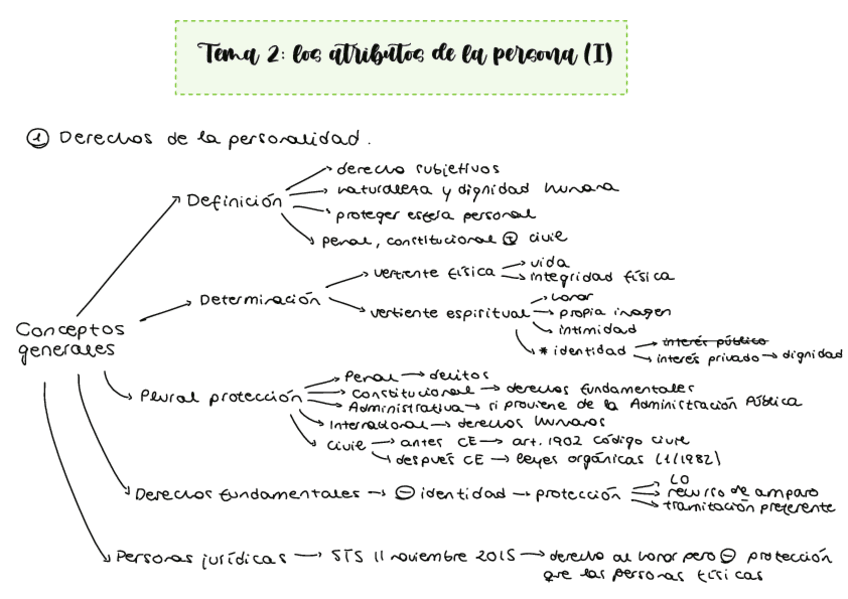 Tema 2: los atributos de la persona (I)
① Derechos de la personalidad.
Conceptos generales
Definición
→ derecho subjetivos
→ naturaleza y dignidad humana
→ proteger esfera personal
→ penal, constitucional ⊕ civil
Determinación
→ vertiente física → vida
→ integridad física
→ vertiente espiritual → honor
→ propia imagen
→ intimidad
* identidad → interés público
→ interés privado → dignidad
Plural protección
→ Penal → delitos
→ Constitucional → derechos fundamentales
→ Administrativa → si proviene de la Administración Pública
→ Internacional → derechos humanos
→ civil → antes CE → art. 1902 Código civil
→ después CE → leyes orgánicas (1/1982)
Derechos fundamentales → ⊖ identidad → protección → LO
→ recurso de amparo
→ tramitación preferente
Personas jurídicas → STS 11 noviembre 2015 → derecho al honor pero ⊖ protección
que las personas físicas